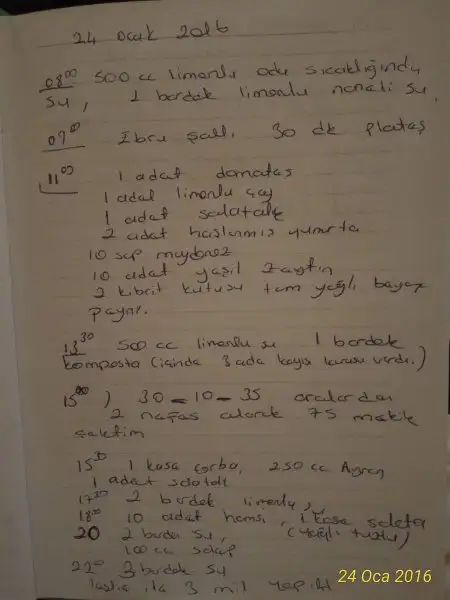 24 Ocak 2016
08⁰⁰ 500 cc limonlu oda sıcaklığında
su, 1 bardak limonlu naneli su.
09⁰⁰ Ebru Şallı 30 dk platas
11⁰⁰ 1 adat domatas
1 adat limonlu çay
1 adat salatalık
2 adat haşlanmış yumurta
10 sap maydonoz
10 adat yaşil zaytin
2 kibrit kutusu tam yağlı bayaz
paynir.
13³⁰ 500 cc limonlu su 1 bardak
komposto (icinde 3 ada kayısı kurusu vardı.)
15⁰⁰ ) 30 - 10 - 35 aralardan
2 nafas alarak 75 makik
çaktim
15 1 kasa çorba, 250 cc Ayran
1 adat
17³⁰ 2 bardak limonlu,
18⁰⁰ 10 adat hamsi, 1 kasa salata
20 2 bardak su, (yağlı tuzlu)
100 cc salap
22⁰⁰ 3 bardak su
ila 3 mil yapıldı
24 Oca 2016